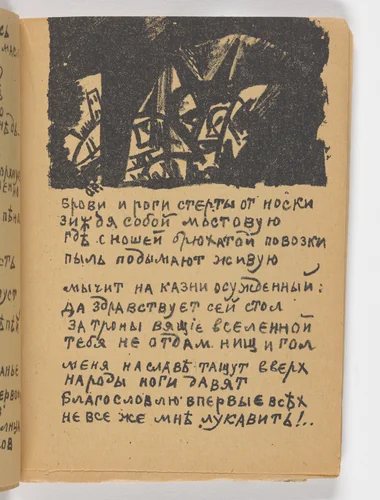 сь
ть
уст
анье
ов
Брови и роги стерты от носки
Зиждя собой мостовую
Гдѣ с ношей брюхатой повозки
Пыль подымают живую
Мычит на казни осужденный:
Да здравствует сей стол
За троны вящіе вселенной
Тебя не отдам нищ и гол
Меня на славѣ тащут вверх
Народы ноги давят
Благословлю впервые всѣх
Не все же мнѣ лукавить!..